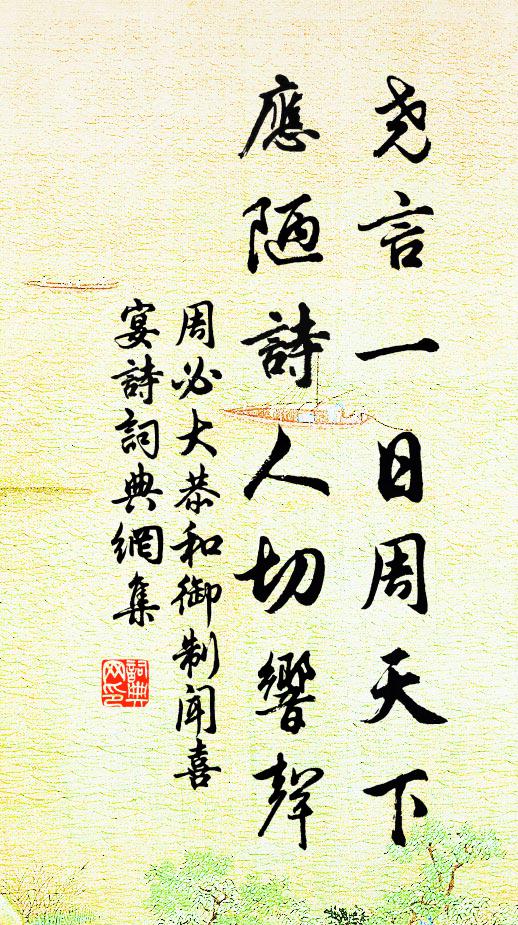 尧言一日周天下
應陋詩人切響聲
周必大恭和御制闻喜
宴詩詞典網集
詞典
网印